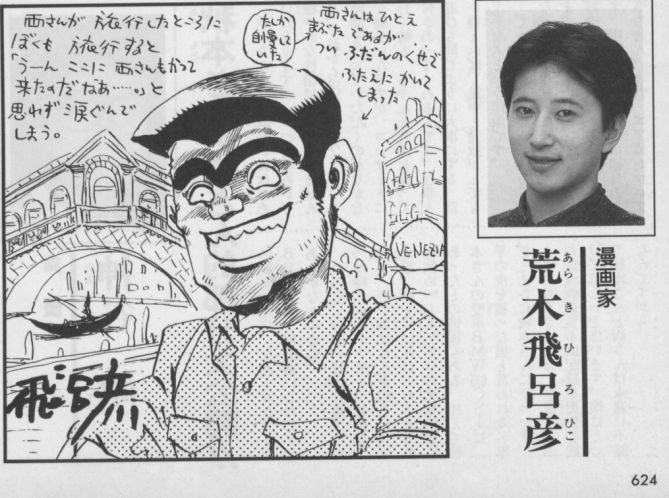 両さんが 旅行したところに
ぼくも 旅行すると
「うーん ここに 両さんもかつて
来たのだなあ……。」と
思わず 涙ぐんで
しまう。
たしか
自慢して
いた
両さんは ひとえ
まぶた であるが
つい ふだんのくせで
ふたえに かいて
しまった
VENEZIA
飛呂彦
漫画家
荒木飛呂彦
あら き ひ ろ ひこ
624